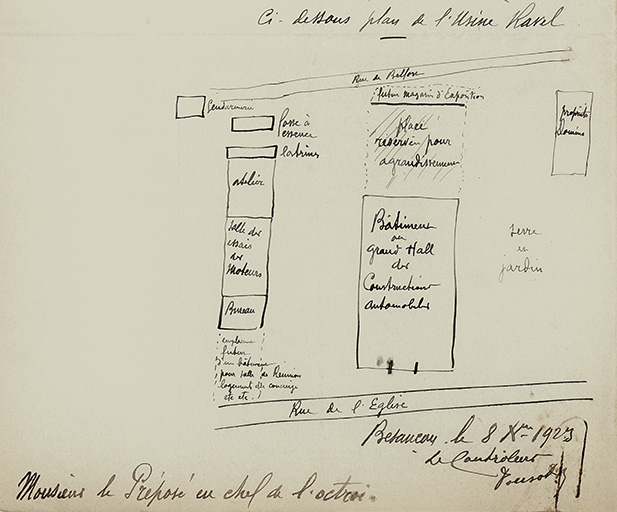 Ci-dessous plan de l'Usine Ravel
Rue de Belfort
Gendarmerie
futur magasin d'Exposition
propriété
Domaine
Fosse à
essence
latrines
place
reservée pour
agrandissement
atelier
Salle des
essais
des
Moteurs
Bureau
Bâtiment
ou
grand Hall
des
Constructions
automobiles
terre
et
jardin
emplacement
futur
d'un bâtiment
pour salle de Réunion
logement du concierge
etc etc.
Rue de l'Eglise
Besançon le 8 Xbre 1923
Le Controleur
Monsieur le Préposé en chef de l'octroi.